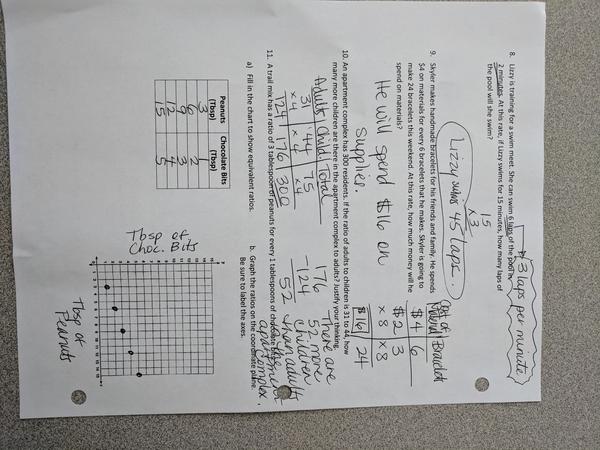 8. Lizzy is training for a swim meet. She can swim 6 laps of the pool in
2 minutes. At this rate, if Lizzy swims for 15 minutes, how many laps of
the pool will she swim?
3 laps per minute
15
x 3
Lizzy swims 45 laps.
9. Skyler makes handmade bracelets for his friends and family. He spends
$4 on materials for every 6 bracelets that he makes. Skyler is going to
make 24 bracelets this weekend. At this rate, how much money will he
spend on materials?
Cost of
Material Bracelet
$4 6
$2 3
x 8 x 8
$16 24
He will spend $16 on
Supplies.
10. An apartment complex has 300 residents. If the ratio of adults to children is 31 to 44, how
many more children are there in the apartment complex to adults? Justify your thinking.
Adults Child. Total
31 44 75
x 4 x 4 x4
124 176 300
176
-124
52
There are
52 more
children
than adults
apartment complex.
11. A trail mix has a ratio of 3 tablespoons of peanuts for every 1 tablespoons of chocolate
a) Fill in the chart to show equivalent ratios.
Peanuts (Tbsp) Chocolate Bits (Tbsp)
3 1
6 2
9 3
12 4
15 5
b. Graph the ratios on the coordinate plane.
Be sure to label the axes.
Tbsp of
Choc. Bits
Tbsp of
Peanuts